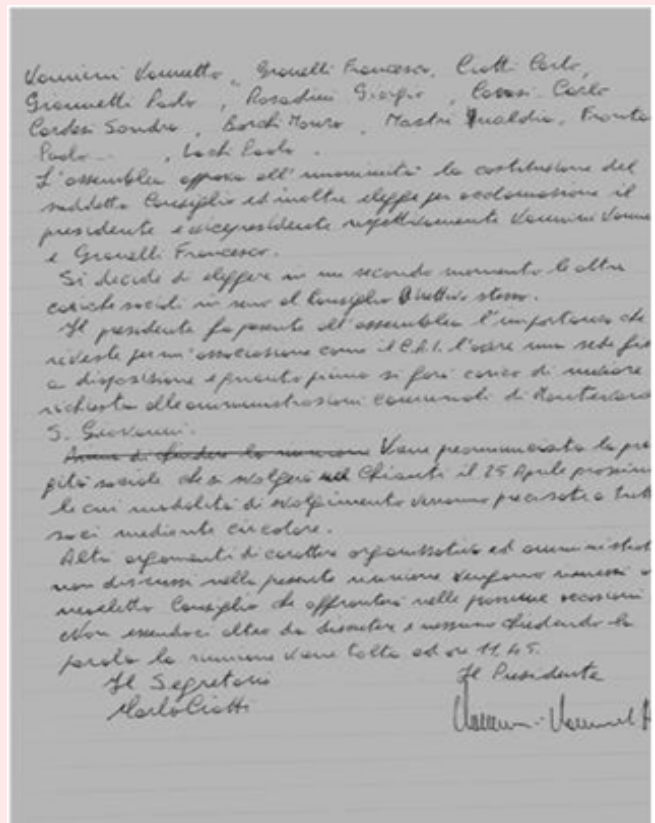 Vannini Vannetto, Gravelli Francesco, Ciotti Carlo,
Giannetti Paolo, Rosadini Giorgio, Carlo
Cardesi Sandro, Borchi Mauro, Mastri Gualdia,
Paolo, Lachi Paolo.
L'assemblea approva all'unanimità la costituzione del
suddetto Consiglio ed inoltre elegge per acclamazione il
presidente e vicepresidente rispettivamente Vannini
e Gravelli Francesco.
Si decide di eleggere in un secondo momento le altre
cariche sociali in seno al Consiglio Direttivo stesso.
Il presidente fa presente all'assemblea l'importanza che
riveste per un'associazione come il C.A.I. l'avere una sede
a disposizione e quanto prima si farà carico di inviare
richiesta alle amministrazioni comunali di
S. Giovanni.
Prima di chiudere la riunione Viene preannunciata la
gita sociale che si svolgerà nel Chianti il 25 Aprile
le cui modalità di svolgimento verranno precisate a
soci mediante circolare.
Altri argomenti di carattere organizzativo ed
non discussi nella presente riunione vengono rimessi
neoeletto Consiglio che affronterà nelle prossime occasioni
Non essendoci altro da discutere e nessuno chiedendo la
parola la riunione viene tolta ad ore 11.45.
Il Segretario Il Presidente
Carlo Ciotti